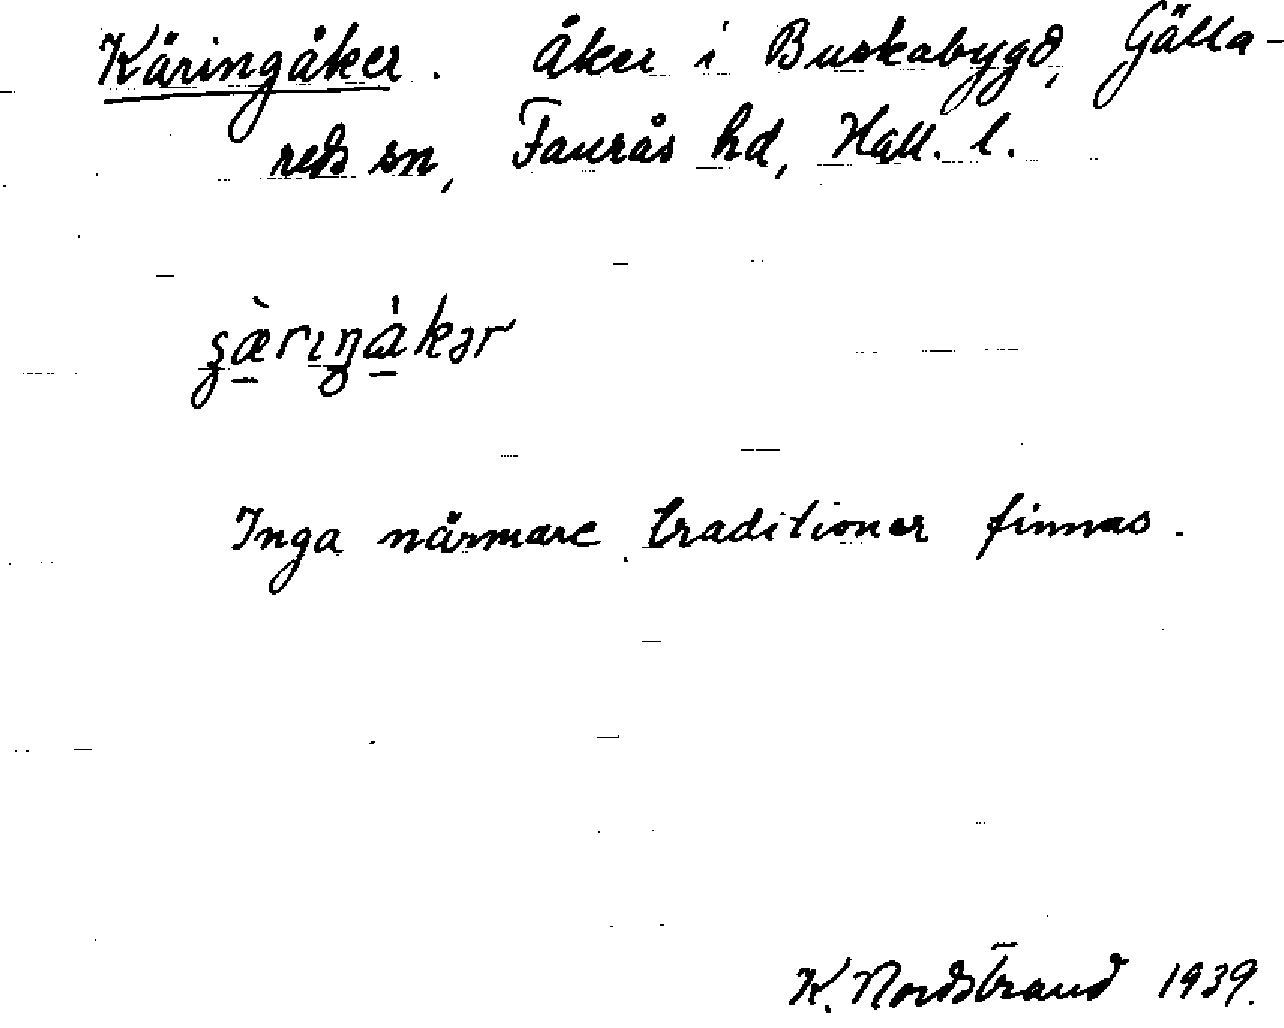 Käringåker. Åker i Buskabygd, Gälla-
reds sn, Faurås hd, Hall. l.
Inga närmare traditioner finnas.
K. Nordstrand 1939.